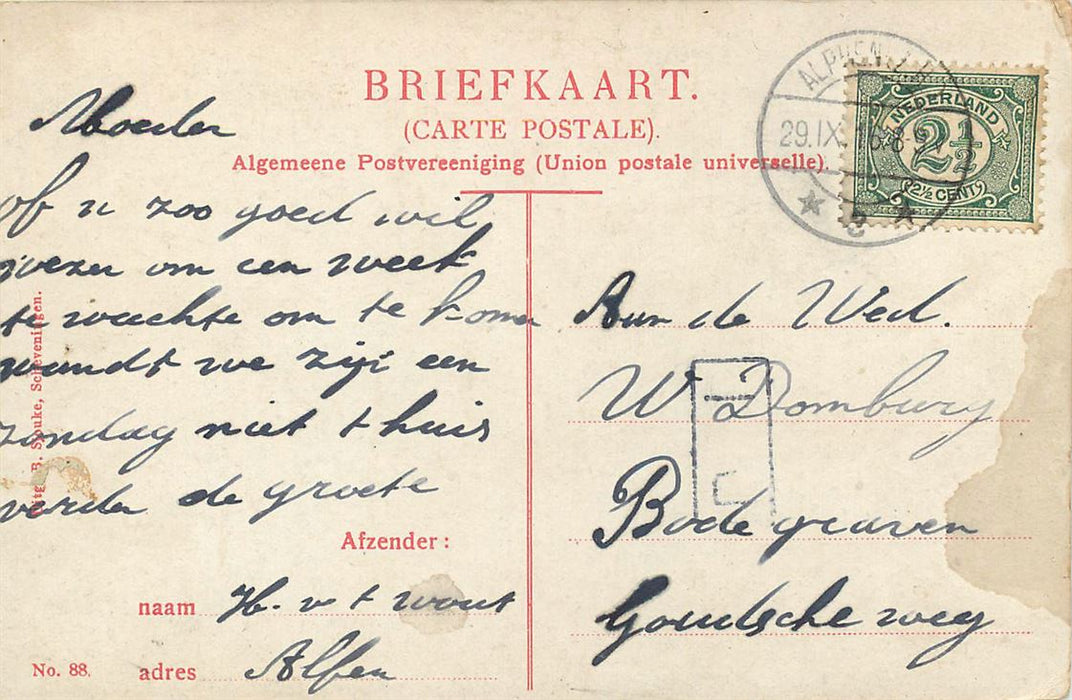 BRIEFKAART.
(CARTE POSTALE).
Algemeene Postvereeniging (Union postale universelle).
ALPHEN
29.IX.
8-9
3
NEDERLAND
2½
2½ CENT
Moeder
of u zoo goed wil
wezen om een week
te wachte om te komen
wandt we zijn een
zondag niet thuis
verder de groete
Afzender:
naam H. v t wout
adres Alfen
No. 88.
Uitg. B. Spouke, Scheveningen.
Aan de Wed.
W Domburg
Bode graven
Goudsche weg